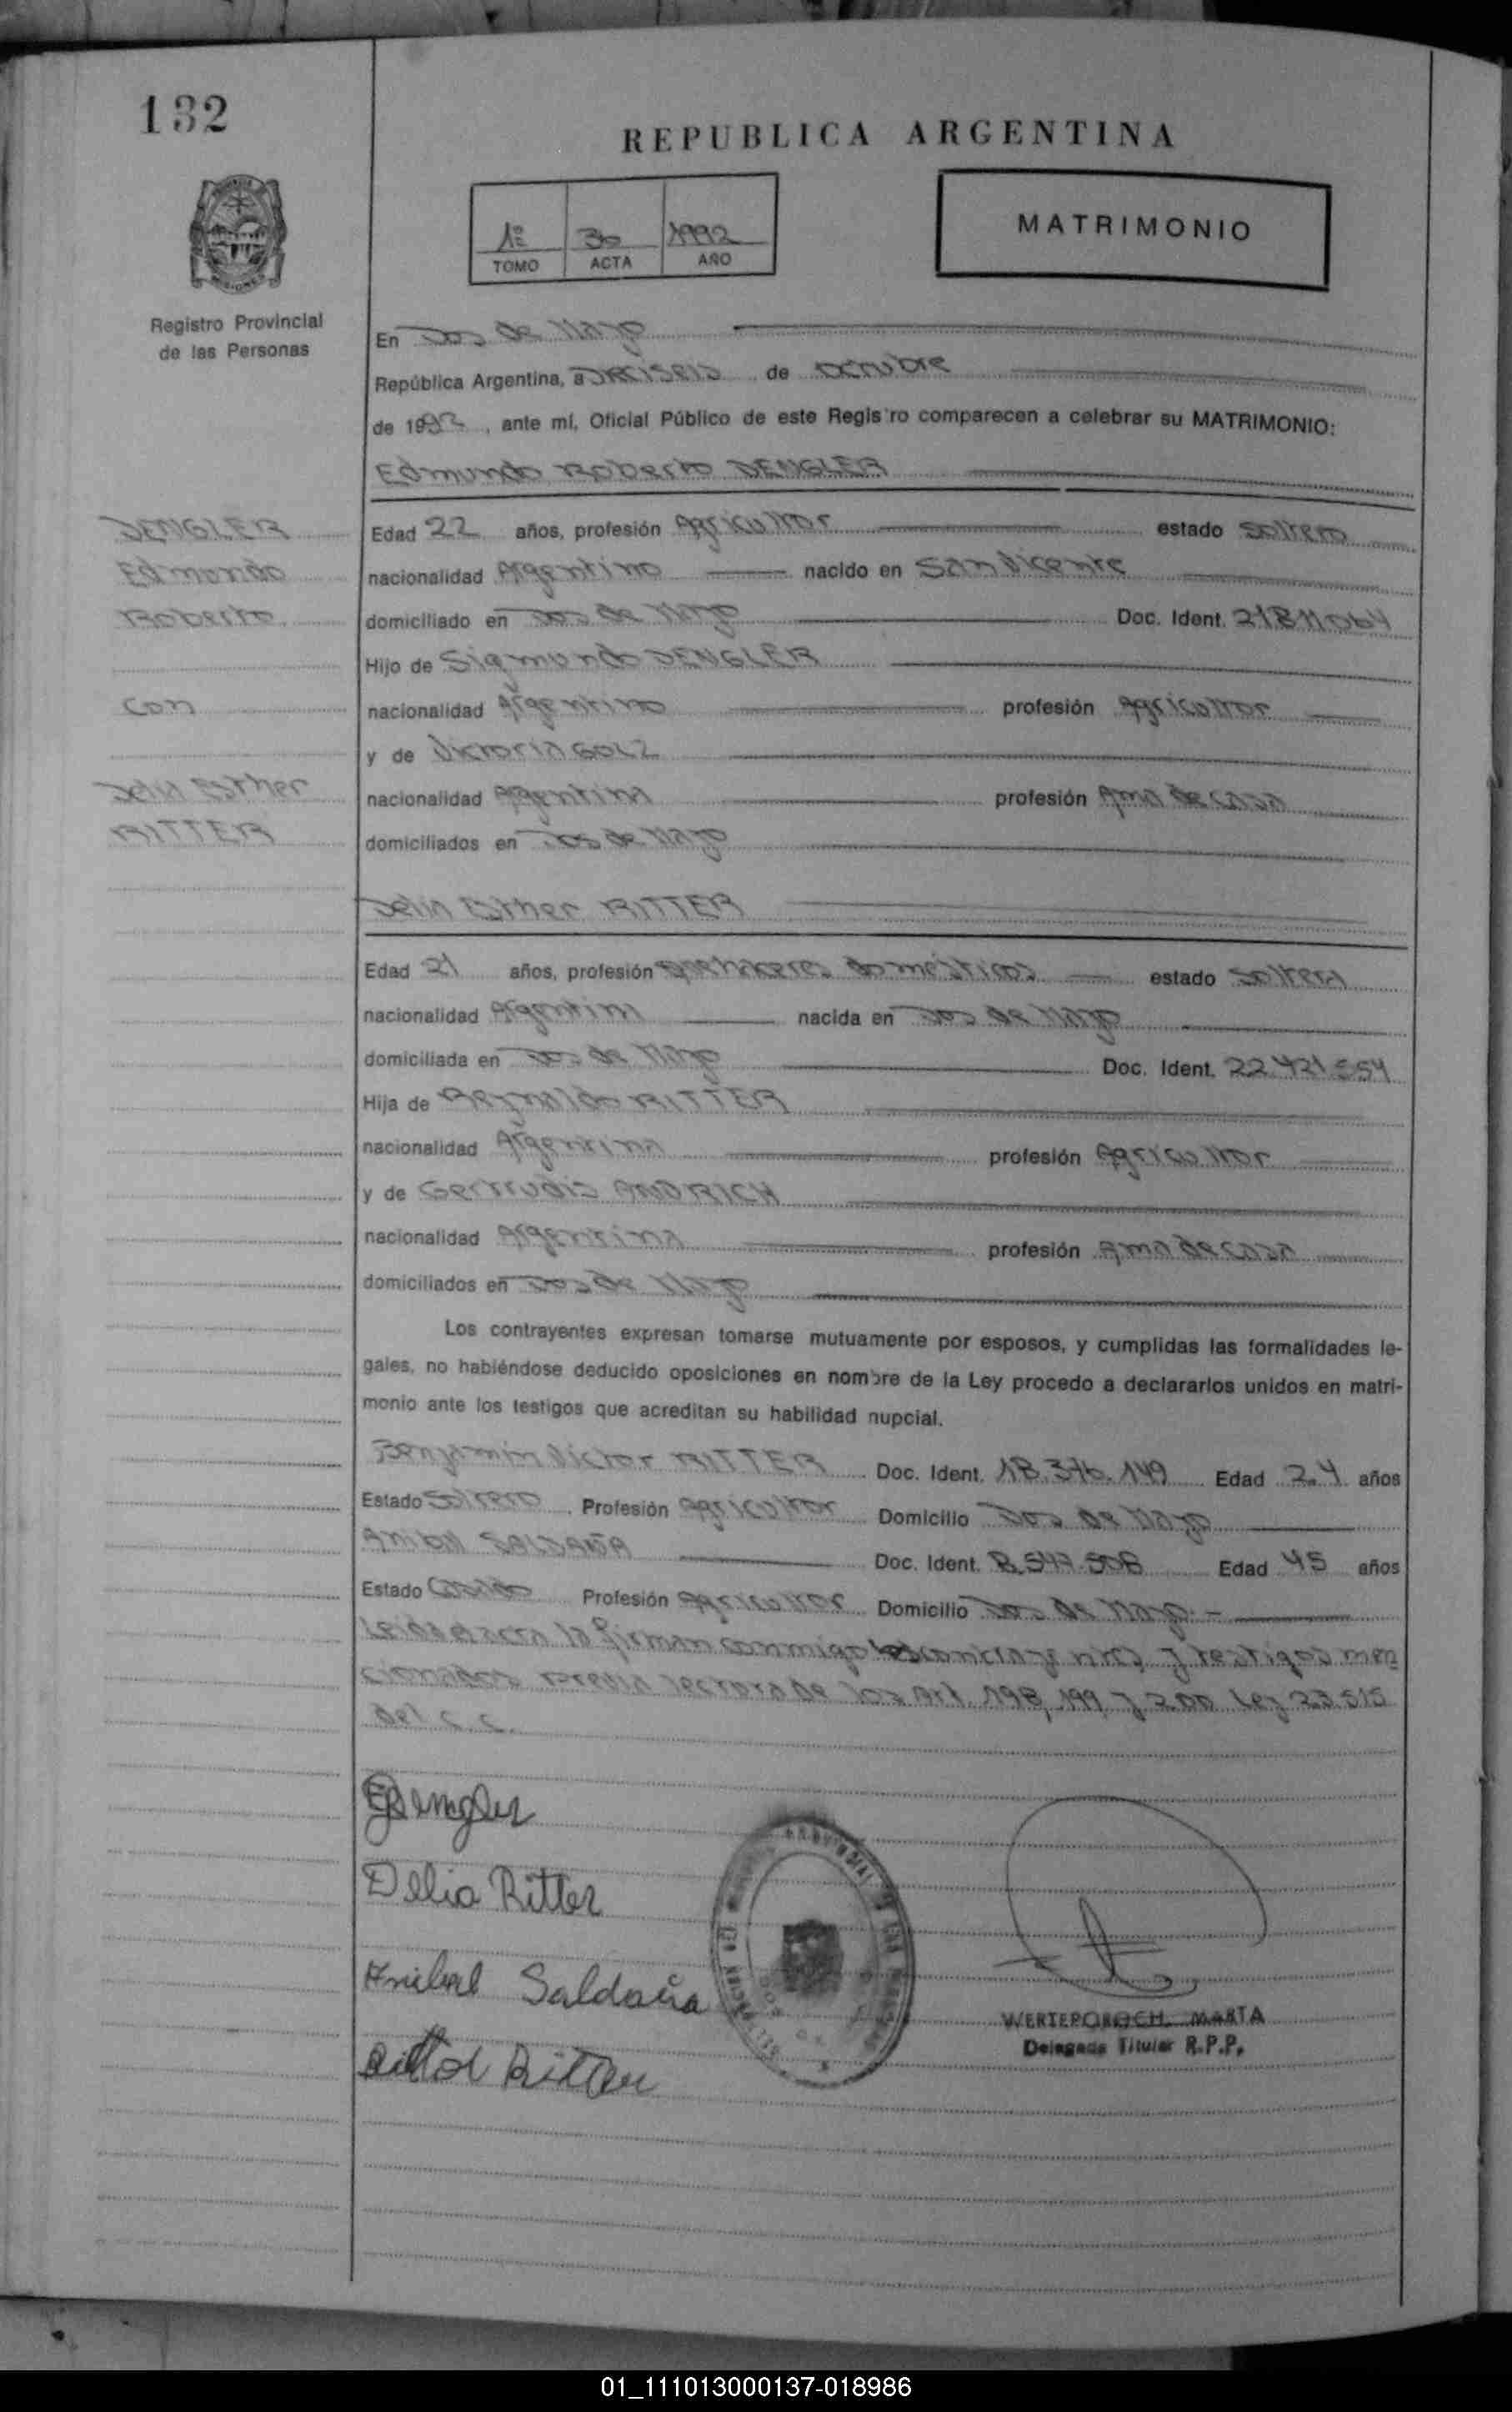 132
REPUBLICA ARGENTINA
1º 30 1992
TOMO ACTA AÑO
MATRIMONIO
Registro Provincial
de las Personas
En Dos de Mayo
República Argentina, a Dieciseis de octubre
de 1992, ante mí, Oficial Público de este Registro comparecen a celebrar su MATRIMONIO:
Edmundo Roberto DENGLER
DENGLER
Edmundo
Roberto
Con
Delia Esther
RITTER
Edad 22 años, profesión Agricultor estado soltero
nacionalidad Argentino nacido en San Vicente
domiciliado en Dos de Mayo Doc. Ident. 21811064
Hijo de Sigmundo DENGLER
nacionalidad Argentino profesión Agricultor
y de Victoria GOLZ
nacionalidad Argentina profesión Ama de casa
domiciliados en Dos de Mayo
Delia Esther RITTER
Edad 21 años, profesión Quehaceres domésticos estado soltera
nacionalidad Argentina nacida en Dos de Mayo
domiciliada en Dos de Mayo Doc. Ident. 22.421.554
Hija de Reynaldo RITTER
nacionalidad Argentina profesión Agricultor
y de Gertrudis ANDRICH
nacionalidad Argentina profesión Ama de casa
domiciliados en Dos de Mayo
Los contrayentes expresan tomarse mutuamente por esposos, y cumplidas las formalidades le-
gales, no habiéndose deducido oposiciones en nombre de la Ley procedo a declararlos unidos en matri-
monio ante los testigos que acreditan su habilidad nupcial.
Benjamin Victor RITTER Doc. Ident. 18.376.149 Edad 24 años
Estado Soltero Profesión Agricultor Domicilio Dos de Mayo
Anibal SALDAÑA Doc. Ident. 8.547.508 Edad 45 años
Estado Casado Profesión Agricultor Domicilio Dos de Mayo.-
Leida el acta la firman conmigo los contrayentes y testigos men
cionados previa lectura de los Art. 198, 199 y 200 Ley 23.515
del C.C.
EDengler
Delia Ritter
Anibal Saldaña
Ritter
WERTEPOROCH, MARTA
Delegada Titular R.P.P.
01_111013000137-018986